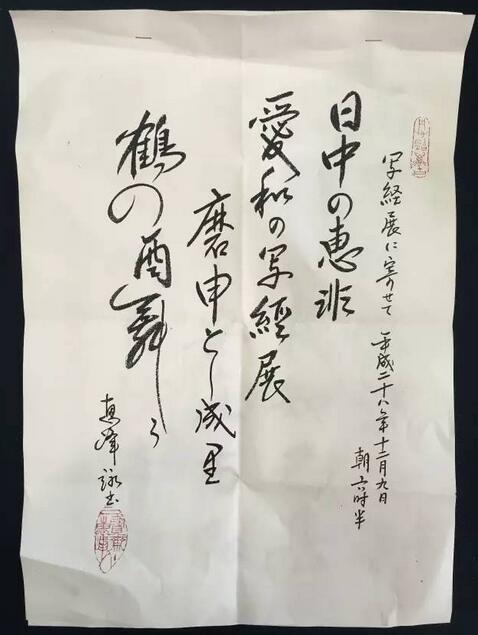 写経展に寄せて 平成二十八年十二月九日
朝六時半
日中の惠
愛和の写經展
磨申とし成里
鶴の酉舞
恵峰詠書